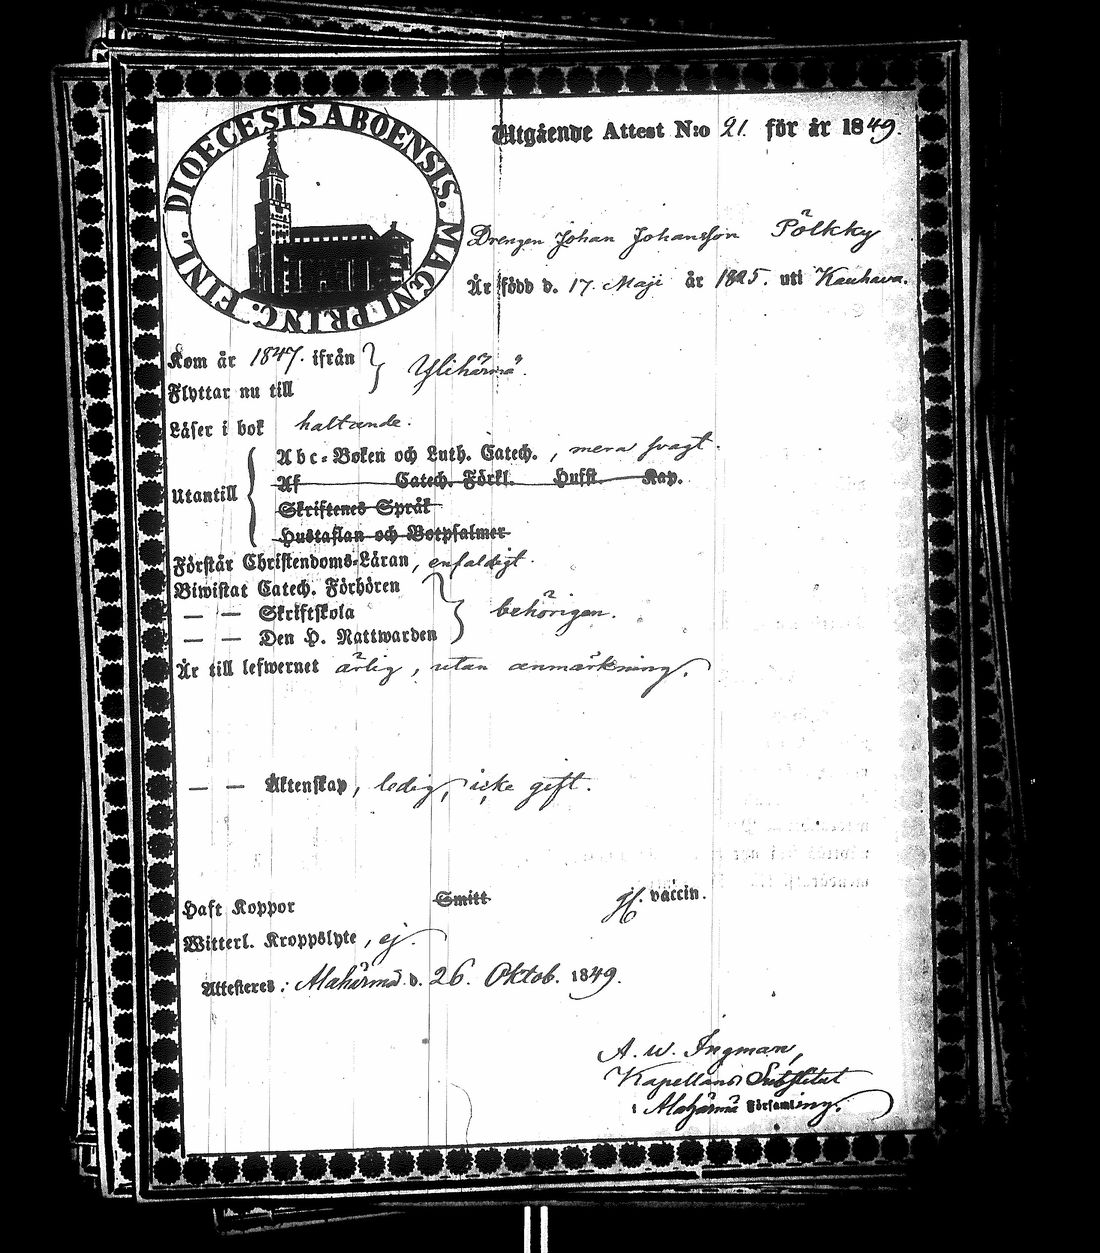 DIOECESIS ABOENSIS. MAGNI PRINC. FINL.
Utgående Attest N:o 21. för år 1849.
Drengen Johan Johansson Pölkky
Är född d. 17. Maji år 1825. uti Kauhava.
Kom år 1847. ifrån } Ylihärmä.
Flyttar nu till
Läser i bok haltande.
Abc-Boken och Luth. Catech., mera svagt.
Utantill { Af Catech. Förkl. Husst. Kap.
Skriftenes Språk
Hustaflan och Botpsalmer
Förstår Christendoms-Läran, enfaldigt.
Biwistat Catech. Förhören
— — Skriftskola } behörigen.
— — Den H. Nattwarden
Är till lefwernet ärlig, utan anmärkning.
— — Äktenskap, ledig, icke gift.
Haft Koppor Smitt vaccin.
Witterl. Kroppslyte, ej.
Attesteres: Alahärmä d. 26. Oktob. 1849.
A. W. Ingman,
Kapellans Substitut
i Alahärmä Församling.